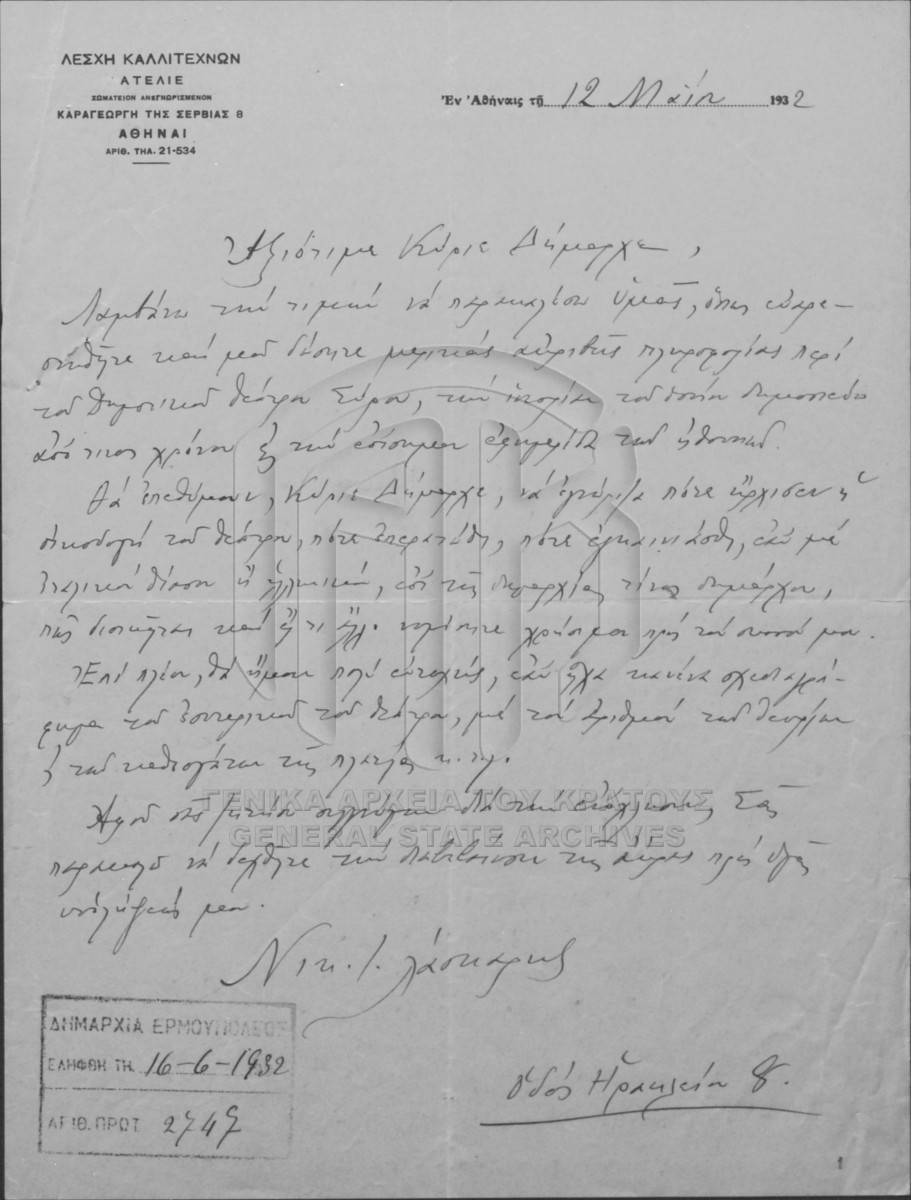 ΛΕΣΧΗ ΚΑΛΛΙΤΕΧΝΩΝ
ΑΤΕΛΙΕ
ΣΩΜΑΤΕΙΟΝ ΑΝΕΓΝΩΡΙΣΜΕΝΟΝ
ΚΑΡΑΓΕΩΡΓΗ ΤΗΣ ΣΕΡΒΙΑΣ 8
ΑΘΗΝΑΙ
ΑΡΙΘ. ΤΗΛ. 21-534
Ἐν Ἀθήναις τῇ 12 Μαΐου 1932
Ἀξιότιμε Κύριε Δήμαρχε,
Λαμβάνω τὴν τιμὴν νὰ παρακαλέσω Ὑμᾶς, ὅπως εὐαρε-
στηθῆτε καί μοῦ δώσητε μερικὰς ἀκριβεῖς πληροφορίας περὶ
τοῦ Δημοτικοῦ θεάτρου Σύρου, τὴν ἱστορίαν τοῦ ὁποίου δημοσιεύω
ἀπό τινος χρόνου εἰς τὴν ἐπίσημον ἐφημερίδα τῶν ἠθοποιῶν.
Θὰ ἐπεθύμουν, Κύριε Δήμαρχε, νὰ ἐγνώριζα πότε ἤρχισεν ἡ
οἰκοδομὴ τοῦ θεάτρου, πότε ἐπερατώθη, πότε ἐγκαινιάσθη, ἐὰν μὲ
ἰταλικὸν θίασον ἢ ἑλληνικόν, ἐπὶ τῆς δημαρχίας τίνος δημάρχου,
πῶς διοικεῖται καὶ ὅ,τι ἄλλο νομίσητε χρήσιμον πρὸς τὸν σκοπόν μου.
Ἐπὶ πλέον, θὰ ἤμουν πολὺ εὐτυχής, ἐὰν εἶχα κανένα σχεδιαγρά-
φημα τοῦ ἐσωτερικοῦ τοῦ θεάτρου, μὲ τὸν ἀριθμὸν τῶν θεωρείων
ἢ τῶν καθισμάτων τῆς πλατείας κ.τ.λ.
Ἀφοῦ σᾶς ζητήσω συγγνώμην διὰ τὴν ἐνόχλησιν, Σᾶς
παρακαλῶ νὰ δεχθῆτε τὴν διαβεβαίωσιν τῆς ἄκρας πρὸς ὑμᾶς
ὑπολήψεώς μου.
Νικ. Ι. Λάσκαρης
Ὁδὸς Ἡρακλείου 8.
ΔΗΜΑΡΧΙΑ ΕΡΜΟΥΠΟΛΕΩΣ
ΕΛΗΦΘΗ ΤΗ. 16-6-1932
ΑΡΙΘ. ΠΡΩΤ 2747
ΓΕΝΙΚΑ ΑΡΧΕΙΑ ΤΟΥ ΚΡΑΤΟΥΣ
GENERAL STATE ARCHIVES
1